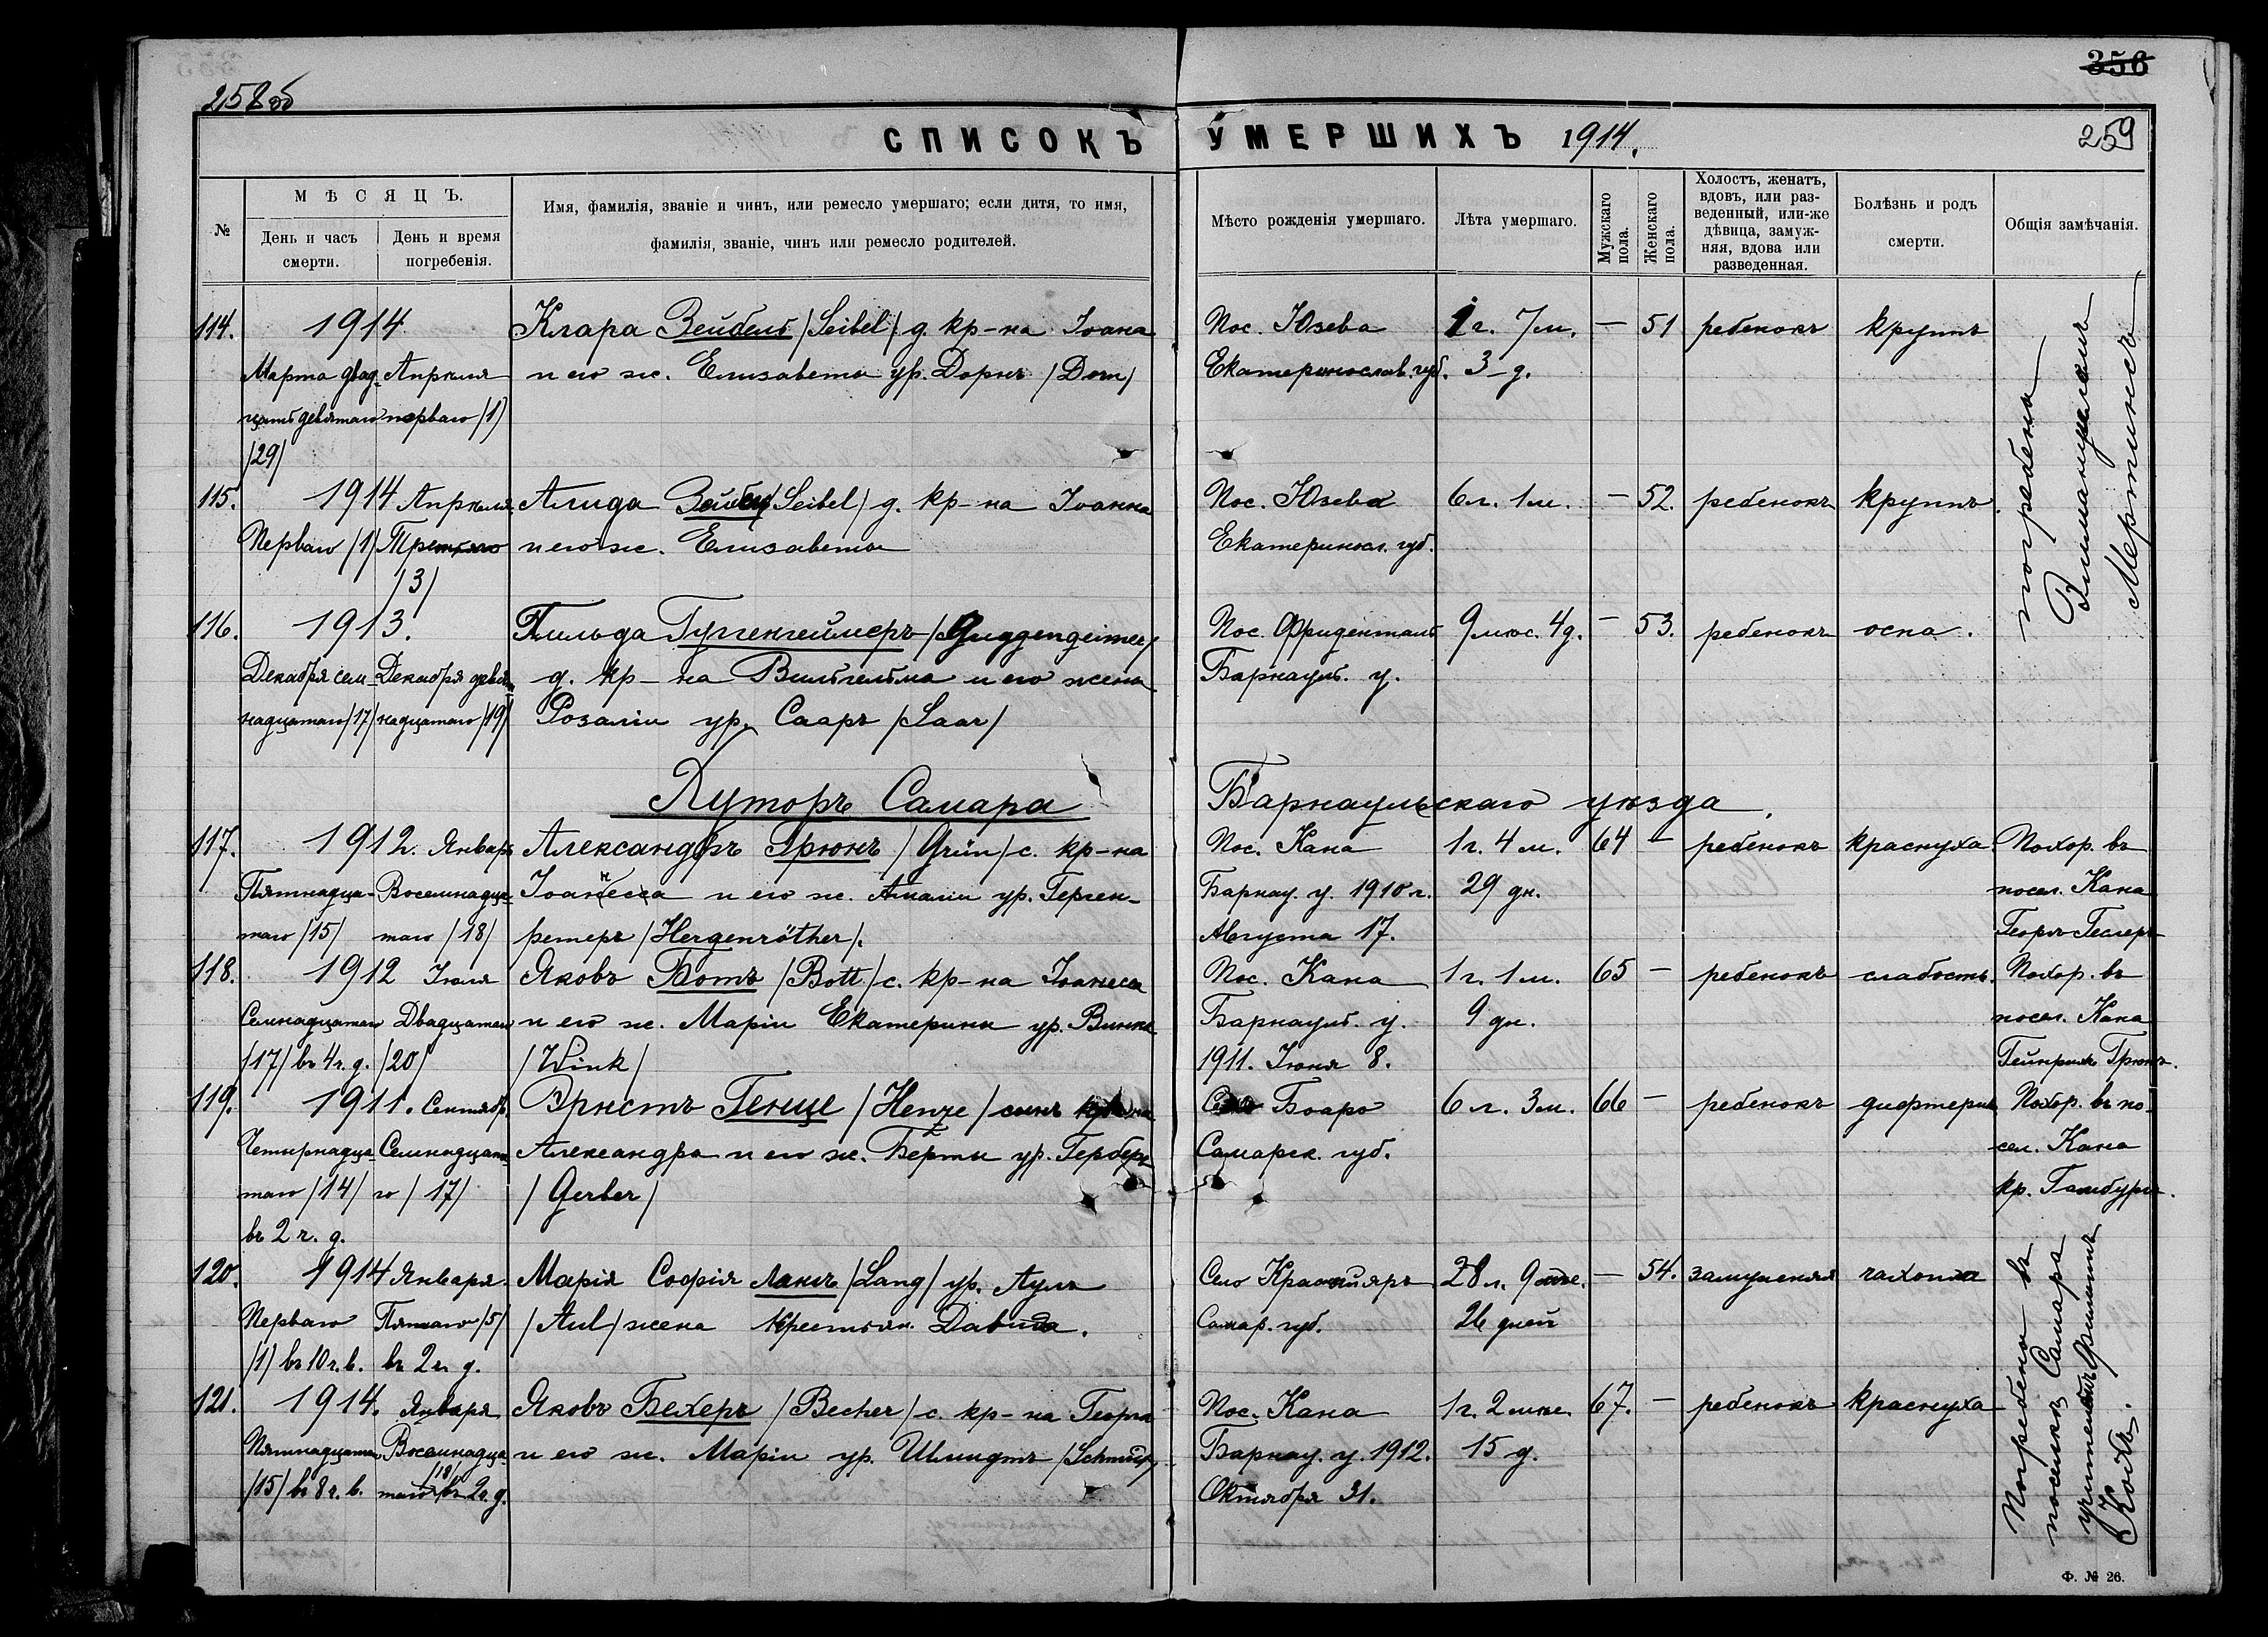 258 об
356
СПИСОКЪ УМЕРШИХЪ 1914.
259
№
МѢСЯЦЪ.
День и часъ смерти.
День и время погребенія.
Имя, фамилія, званіе и чинъ, или ремесло умершаго; если дитя, то имя,
фамилія, званіе, чинъ или ремесло родителей.
Мѣсто рожденія умершаго.
Лѣта умершаго.
Мужскаго пола.
Женскаго пола.
Холостъ, женатъ,
вдовъ, или раз-
веденный, или-же
дѣвица, замуж-
няя, вдова или
разведенная.
Болѣзнь и родъ
смерти.
Общія замѣчанія.
114. 1914 Клара Зейбель /Seibel/ д. кр-на Іоана Пос. Юзева 1 г. 7 м. — 51 ребенокъ крупъ
Марта двад- Апрѣля и его ж. Елизаветы ур. Дорнъ /Dorn/ Екатеринослав. губ. 3 д.
цать девятаго перваго /1/
/29/
погребены
Эммануилемъ
115. 1914 Апрѣля Алида Зейбель /Seibel/ д. кр-на Іоанна Пос. Юзева 6 л. 1 м. — 52. ребенокъ крупъ.
Перваго /1/ Третьяго и его ж. Елизаветы Екатеринос. губ.
/3/
116. 1913. Тильда Гуггенгеймеръ /Guggengeimer/ Пос. Фриденталь 9 мѣс. 4 д. — 53. ребенокъ оспа.
Декабря сем- Декабря девят- д. кр-на Вильгельма и его жены Барнаул. у.
надцатаго /17/ надцатаго /19/ Розаліи ур. Сааръ /Saar/
Хуторъ Самара Барнаульскаго уѣзда.
117. 1912. Январь Александръ Грюнъ /Grün/ с. кр-на Пос. Кана 1 г. 4 м. 64 — ребенокъ краснуха Похор. въ
Пятнадца- Восемнадца- и его ж. Амаліи ур. Герген- Барнау. у. 1910 г. 29 дн. посел. Кана
таго /15/ таго /18/ретеръ /Hergenröther/. Августа 17. Георгъ Геслеръ
118. 1912 Іюля Яковъ Ботъ /Bott/ с. кр-на Іоанеса Пос. Кана 1 г. 1 м. 65 — ребенокъ слабость. Похор. въ
Семнадцатаго Двадцатаго и его ж. Маріи Екатерины ур. Винкъ Барнаул. у. 9 дн. посел. Кана
/17/ въ 4 ч. д. /20/ /Wink/ 1911. Іюня 8. Гейнрихъ Грюнъ.
119. 1911. Сентябрь Эрнстъ Генце /Henze/ сынъ кр-на Село Боаро 6 л. 3 м. 66 — ребенокъ дифтеритъ Похор. въ по-
Четырнадца- Семнадцата- Александра и его ж. Берты ур. Герберъ Самарск. губ. сел. Кана
таго /14/ го /17/ /Gerber/ кр. Гамбургъ.
въ 2 ч. д.
120. 1914 Января. Марія Софія Лангъ /Lang/ ур. Аулъ Село Краснояръ 28 л. 9 мѣс. — 54. замужняя чахотка
Перваго Пятаго /5/ /Aul/ жена крестьян. Давида. Самар. губ. 26 дней
/1/ въ 10 ч. в. въ 2 ч. д.
Погребены въ
поселкѣ Самара
учителемъ Филиппъ
121. 1914. Января Яковъ Бехеръ /Becher/ с. кр-на Георга Пос. Кана 1 г. 2 мѣс. 67. — ребенокъ краснуха
Пятнадцатаго Восемнадца- и его ж. Маріи ур. Шмидтъ /Schmidt/ Барнау. у. 1912. 15 д.
/15/ въ 8 ч. в. таго /18/ въ 2 ч. д. Октября 31.
Ф. № 26.